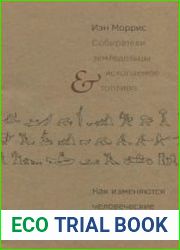 Иэн Моррис
Собиратели
земледельцы
& ископаемое
топливо
Как изменяются
человеческие
ECO TRIAL BOOK